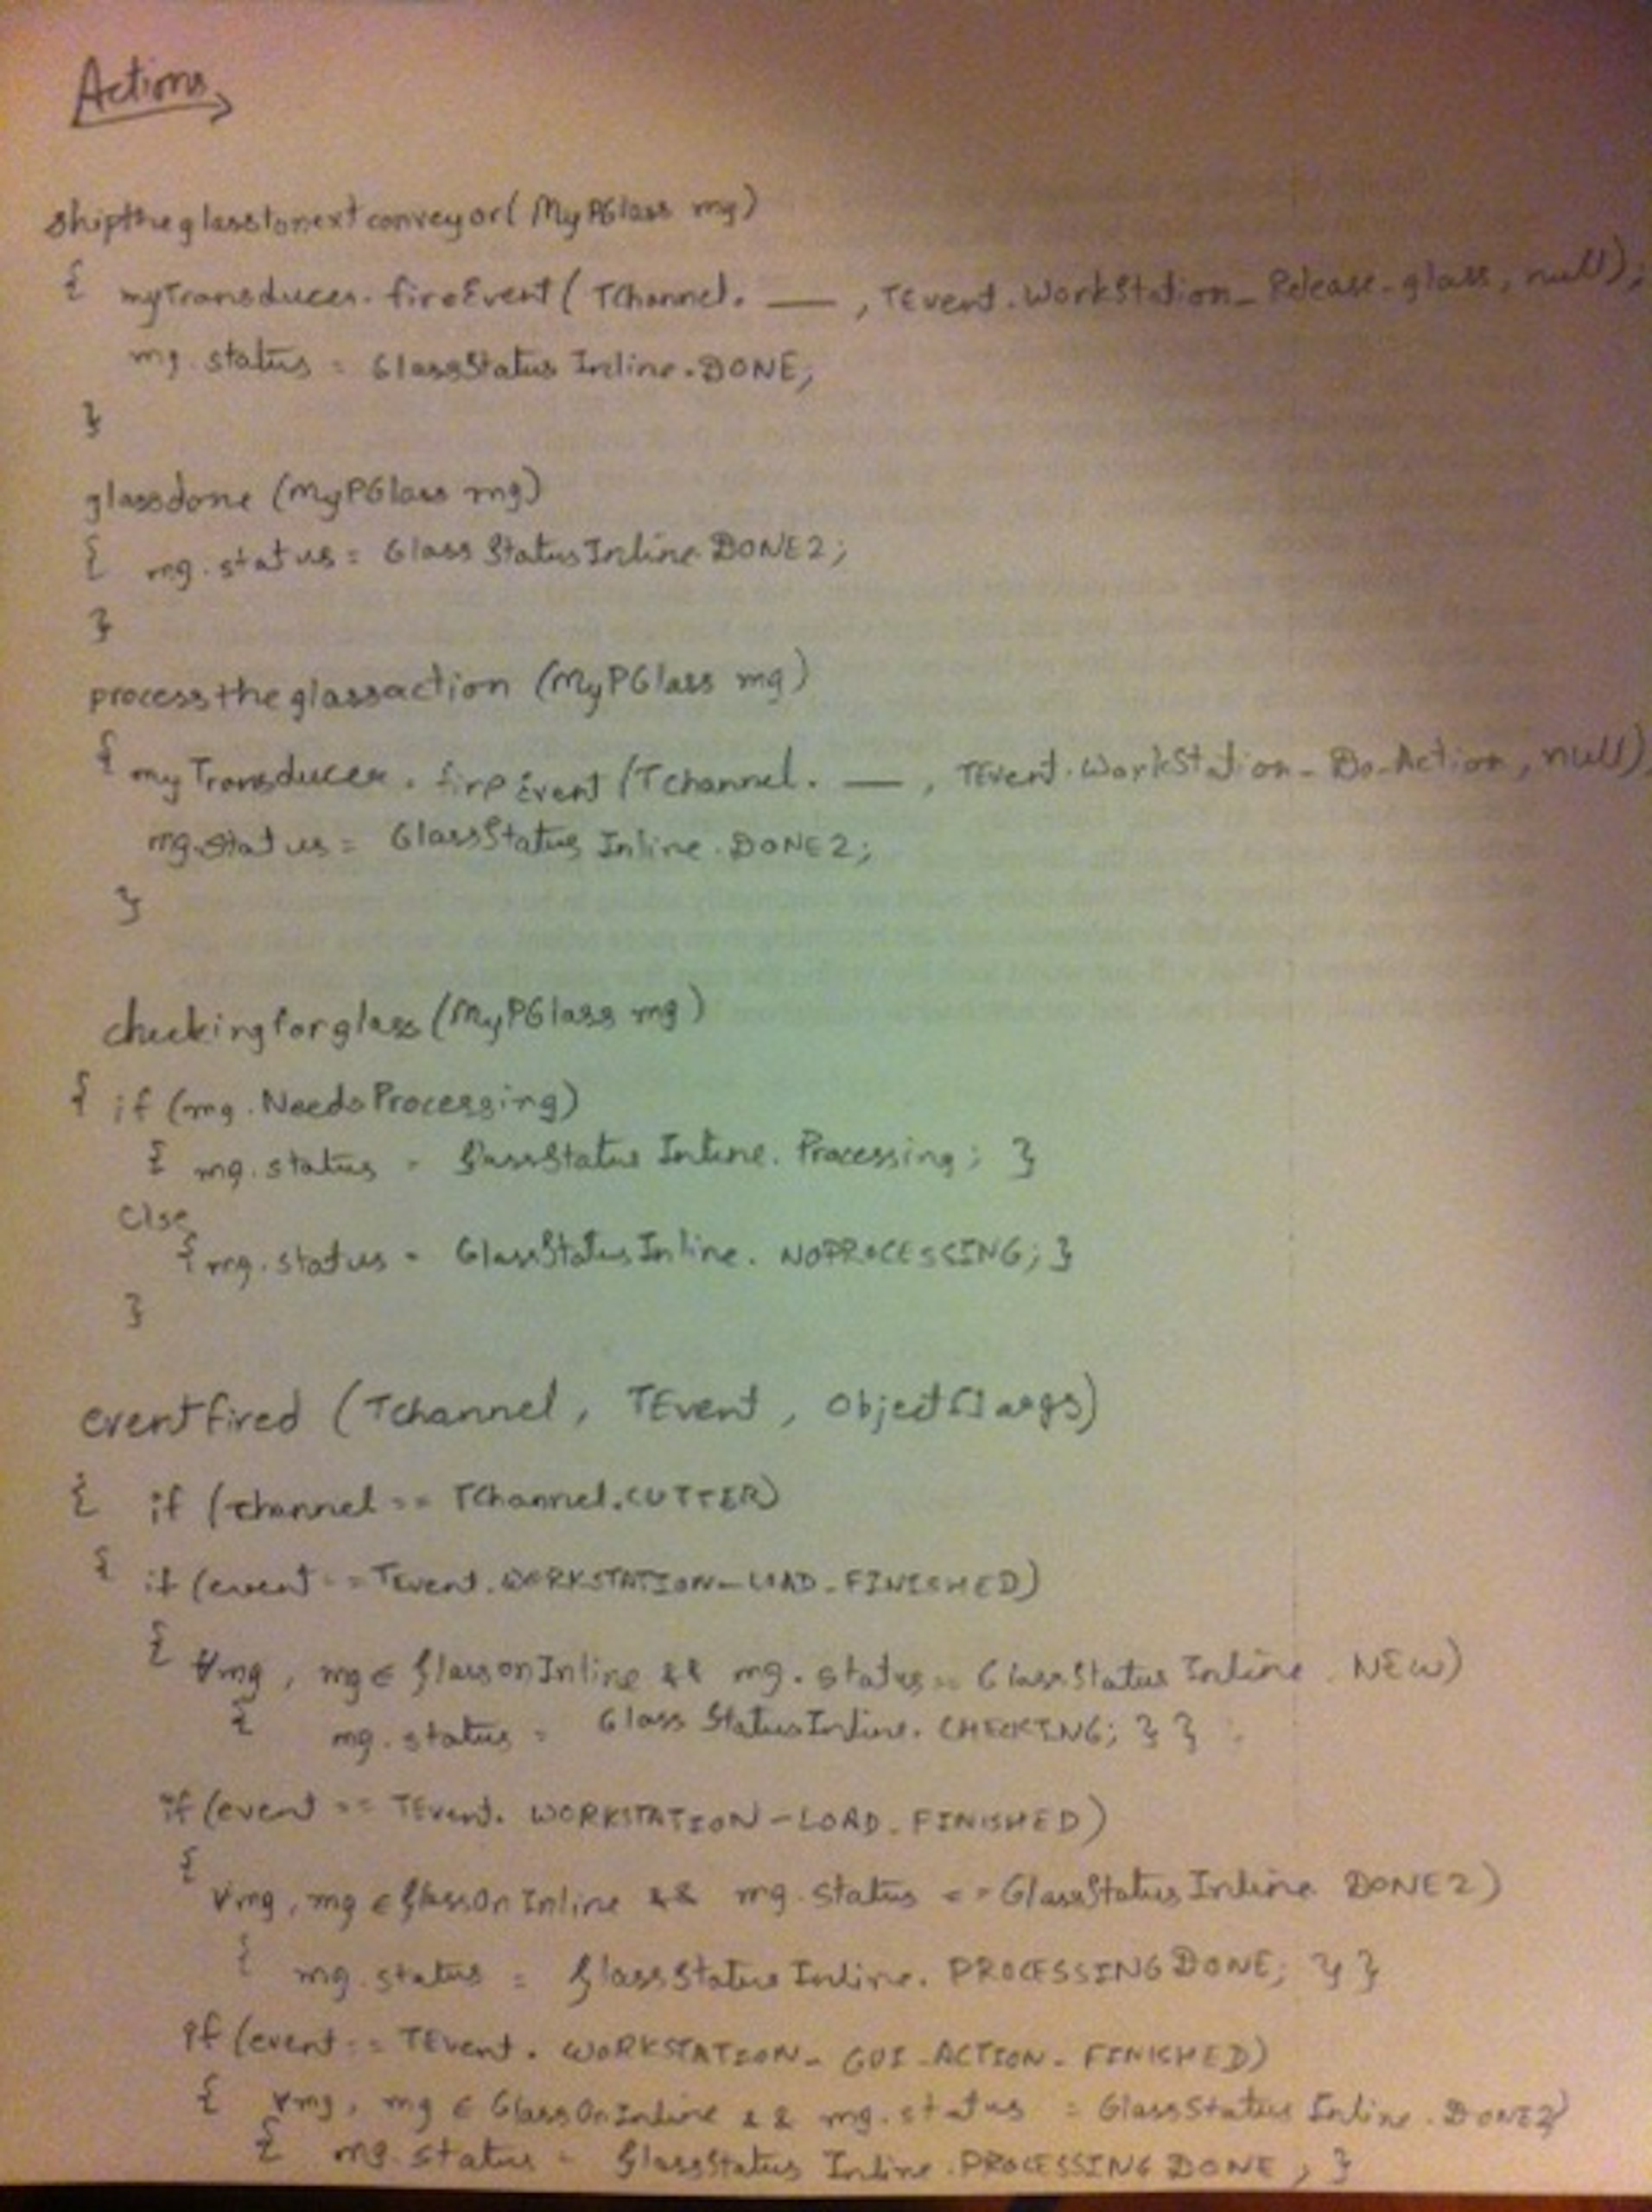 Actions
shiptheglasstonextconveyor( MyPGlass mg)
{ myTransducer. fireEvent ( TChannel. ___ , TEvent. WorkStation_ Release-glass, null);
mg. status = GlassStatus Inline. DONE;
}
glassdone (MyPGlass mg)
{ mg. status = Glass StatusInline. DONE2;
}
processtheglassaction (MyPGlass mg)
{ myTransducer. fireEvent (TChannel. ___ , TEvent. WorkStation-Do-Action, null)
mg.status = GlassStatus Inline. DONE2;
}
checkingforglass (MyPGlass mg)
{ if (mg. NeedsProcessing)
{ mg. status = GlassStatus Inline. Processing; }
else
{ mg. status = GlassStatusInline. NOPROCESSING; }
}
eventfired (Tchannel, TEvent, Object[] args)
{ if (channel == TChannel.CUTTER)
{ if (event == TEvent. WORKSTATION-LOAD-FINISHED)
{ ∀mg, mg ∈ GlassonInline && mg. status == GlassStatus Inline. NEW)
{ mg. status = Glass StatusInline. CHECKING; } }
if (event == TEvent. WORKSTATION-LOAD-FINISHED)
{
∀mg, mg ∈ GlassOnInline && mg. status == GlassStatus Inline. DONE2)
{ mg. status = GlassStatus Inline. PROCESSINGDONE; } }
if (event == TEvent. WORKSTATION-GUI-ACTION-FINISHED)
{ ∀mg, mg ∈ GlassOnInline && mg. status = GlassStatus Inline. DONE2)
{ mg. status = GlassStatus Inline. PROCESSING DONE, }